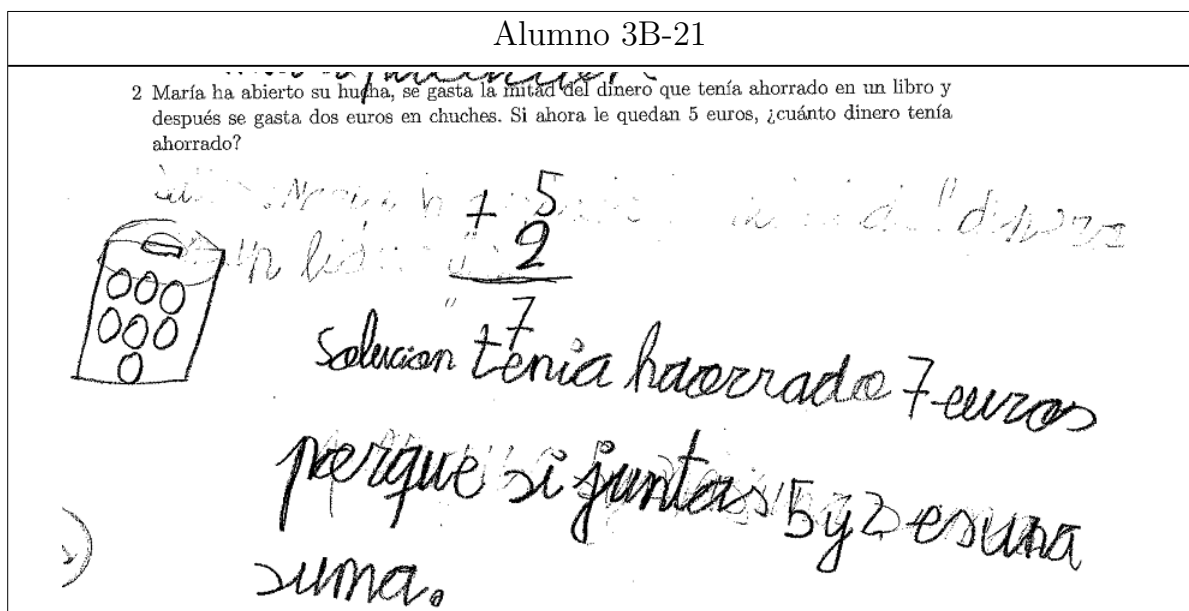 Alumno 3B-21
2 María ha abierto su hucha, se gasta la mitad del dinero que tenía ahorrado en un libro y
después se gasta dos euros en chuches. Si ahora le quedan 5 euros, ¿cuánto dinero tenía
ahorrado?
+ 5
2
7
dinero
un
Solucion tenia haorrado 7 euros
porque si juntas 5 y 2 es una
suma.